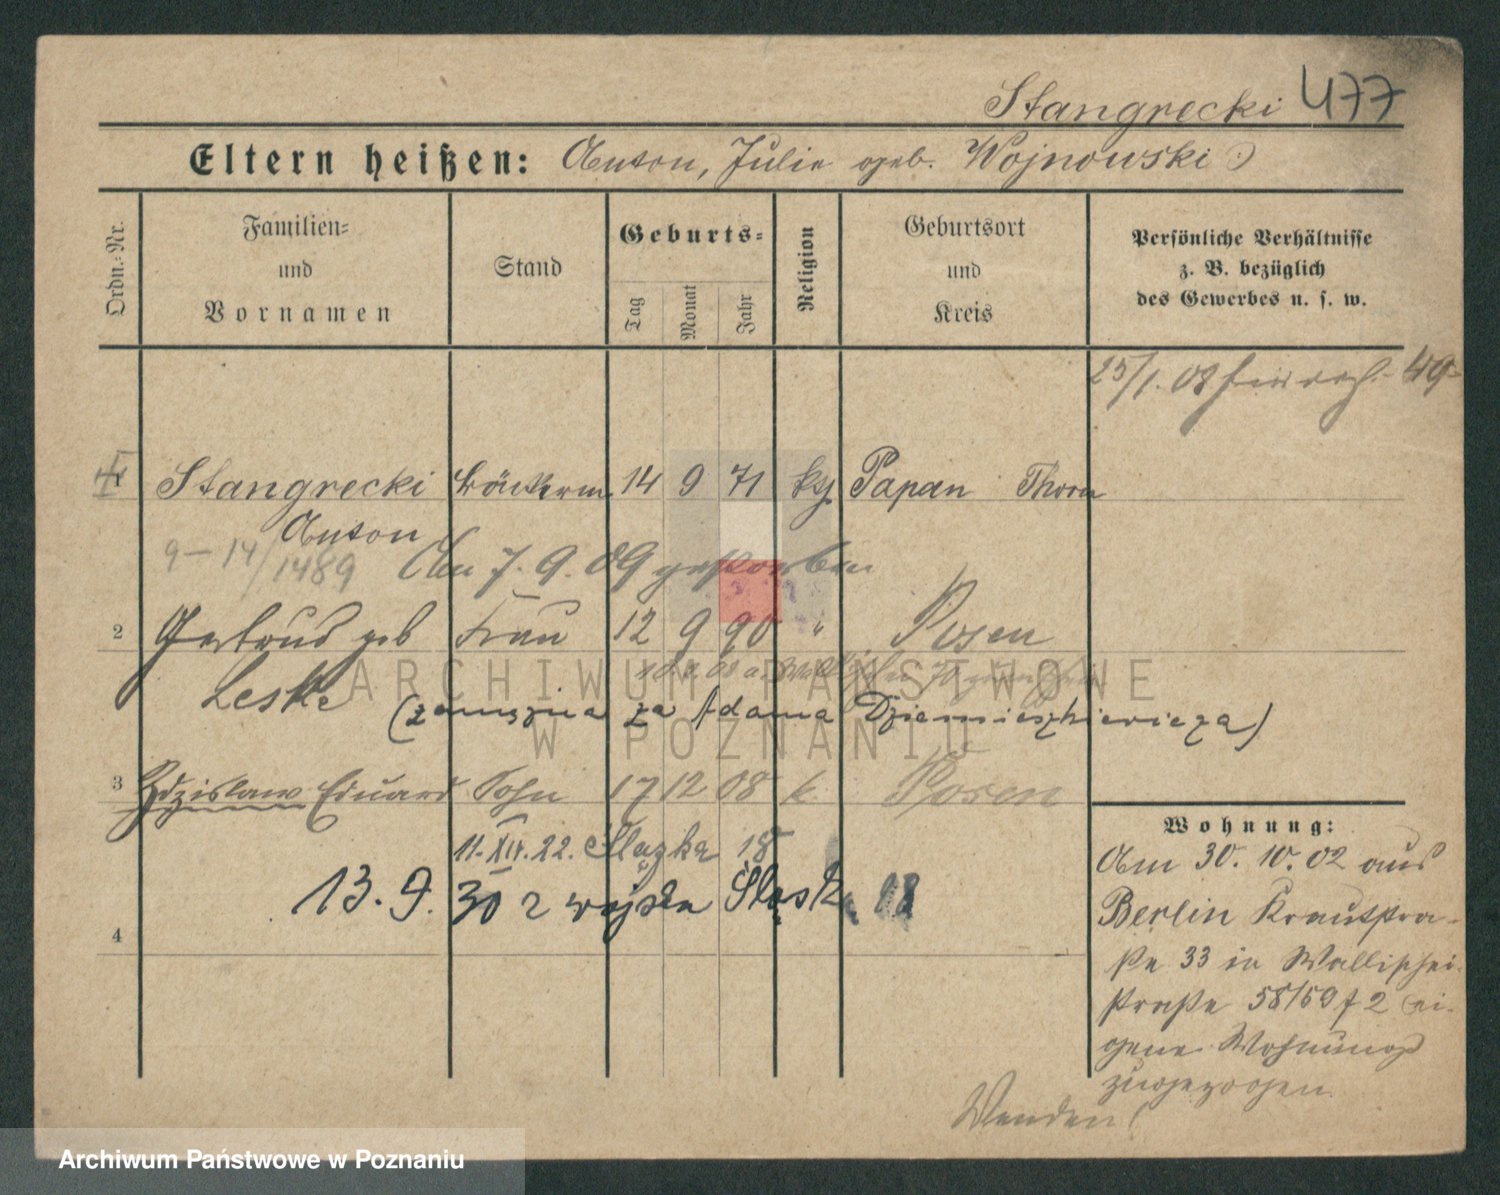 Stangrecki 477
Eltern heißen: Anton, Julie geb. Wojnowski
Ordn.-Nr.
Familien-
und
Vornamen
Stand
Geburts-
Tag
Monat
Jahr
Religion
Geburtsort
und
Kreis
Persönliche Verhältnisse
z. B. bezüglich
des Gewerbes u. s. w.
25/1. 08
Stangrecki Bäckerm. 14 9 71 Papan Thorn
Anton
9-14/1489 Am 7. 9. 09 gestorben
2 Gertrud geb Frau 12 9 90 " Posen
Leske
(zamężna za Adama Dziemieszkiewicza)
3 Zdzislaw Eduard Sohn 17 12 08 k. Posen
11. XII. 22. Śląska 18
13. 9. 30 z wojska Śląsk. 18
4
Wohnung:
Am 30. 10. 02 aus
Berlin Krautstra-
ße 33 in Wallischei-
straße 58/59 f 2 ei-
gene Wohnung
zugezogen.
Wenden!
ARCHIWUM PAŃSTWOWE
W POZNANIU
Archiwum Państwowe w Poznaniu